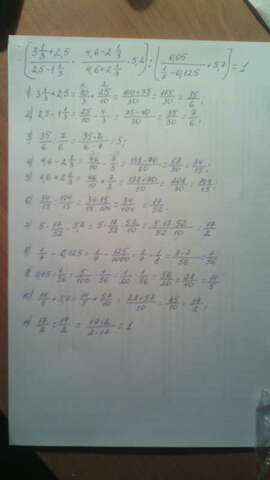 [(3 1/3 + 2,5)/(2,5 - 1 1/3) · (4,6 - 2 1/3)/(4,6 + 2 1/3) · 5,2] : [0,05/(1/7 - 0,125) + 5,7] = 1
1) 3 1/3 + 2,5 = 10/3 + 25/10 = (100+75)/30 = 175/30 = 35/6;
2) 2,5 - 1 1/3 = 25/10 - 4/3 = (75-40)/30 = 35/30 = 7/6;
3) 35/6 : 7/6 = 35·6/6·7 = 5;
4) 4,6 - 2 1/3 = 46/10 - 7/3 = (138-70)/30 = 68/30 = 34/15;
5) 4,6 + 2 1/3 = 46/10 + 7/3 = (138+70)/30 = 208/30 = 104/15;
6) 34/15 : 104/15 = 34·15/15·104 = 34/104 = 17/52
7) 5 · 17/52 · 5,2 = 5 · 17/52 · 52/10 = 5·17·52/52·10 = 17/2
8) 1/7 - 0,125 = 1/7 - 125/1000 = 1/7 - 1/8 = (8-7)/56 = 1/56
9) 0,05 : 1/56 = 5/100 : 1/56 = 1/20 : 1/56 = 56/20 = 28/10 = 14/5
10) 14/5 + 5,7 = 14/5 + 57/10 = (28+57)/10 = 85/10 = 17/2;
11) 17/2 : 17/2 = 17·2/2·17 = 1